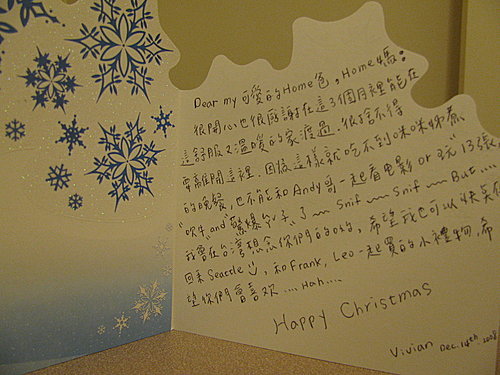 Dear my 可愛的Home爸,Home媽:
很開心也很感謝在這3個月裡能在
這舒服又溫暖的家渡過.很捨不得
要離開這裡.因為這樣就吃不到咪咪姊煮
的晚餐,也不能和Andy哥一起看電影 or 玩"13張,
"吹牛"and"驚爆 子"了~ Snif ~ Snif ~ But....
我會在台灣想念你們的OSO,希望我也可以快點
回來Seattle,和Frank, Leo一起買的小禮物,希
望你們會喜歡....Hah....
Happy Christmas
Vivian Dec.14th.2008